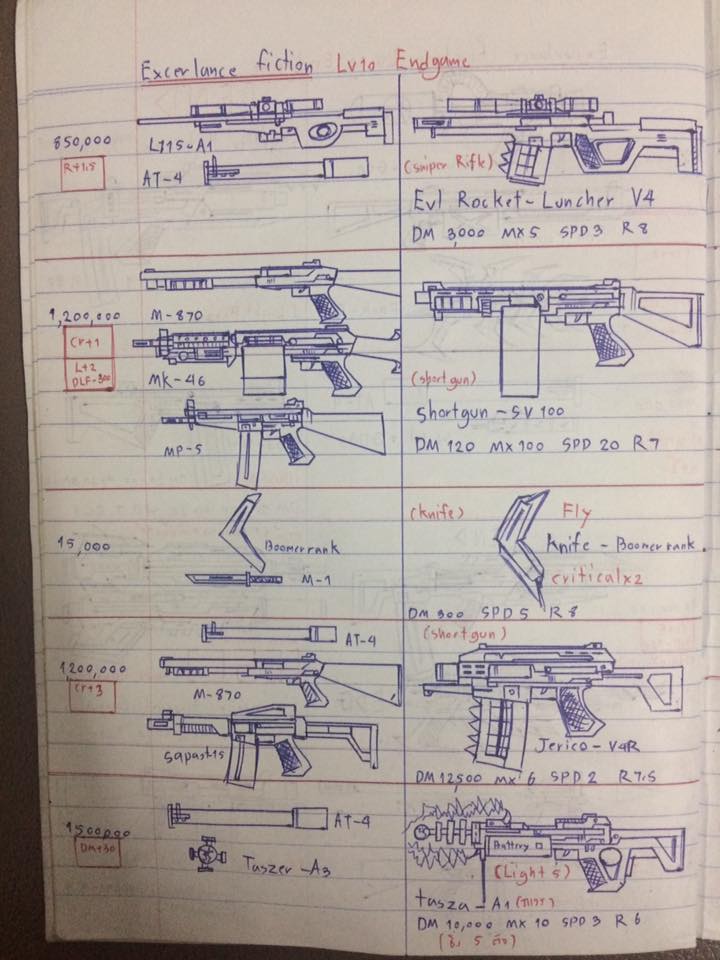 Excerlance fiction Lv10 Endgame
850,000
R+1,5
L115-A1
AT-4
(sniper Rifle)
Evl Rocket-Luncher V4
DM 3,000 MX 5 SPD 3 R 8
1,200,000
Cr+1
L+2
DLF-300
M-870
MK-46
MP-5
(shortgun)
Shortgun-SV 100
DM 120 MX 100 SPD 20 R 7
15,000
Boomerrank
M-1
(knife)
Fly
knife-Boomerrank
criticalx2
DM 300 SPD 5 R 8
1200,000
Cr+3
AT-4
M-870
Sapast15
(shortgun)
Jerico-V4R
DM 12,500 MX 6 SPD 2 R 7,5
1500,000
DM+30
AT-4
Taszer-A3
Battrey
(Light 5)
tasza-A1
DM 10,000 MX 10 SPD 3 R 6